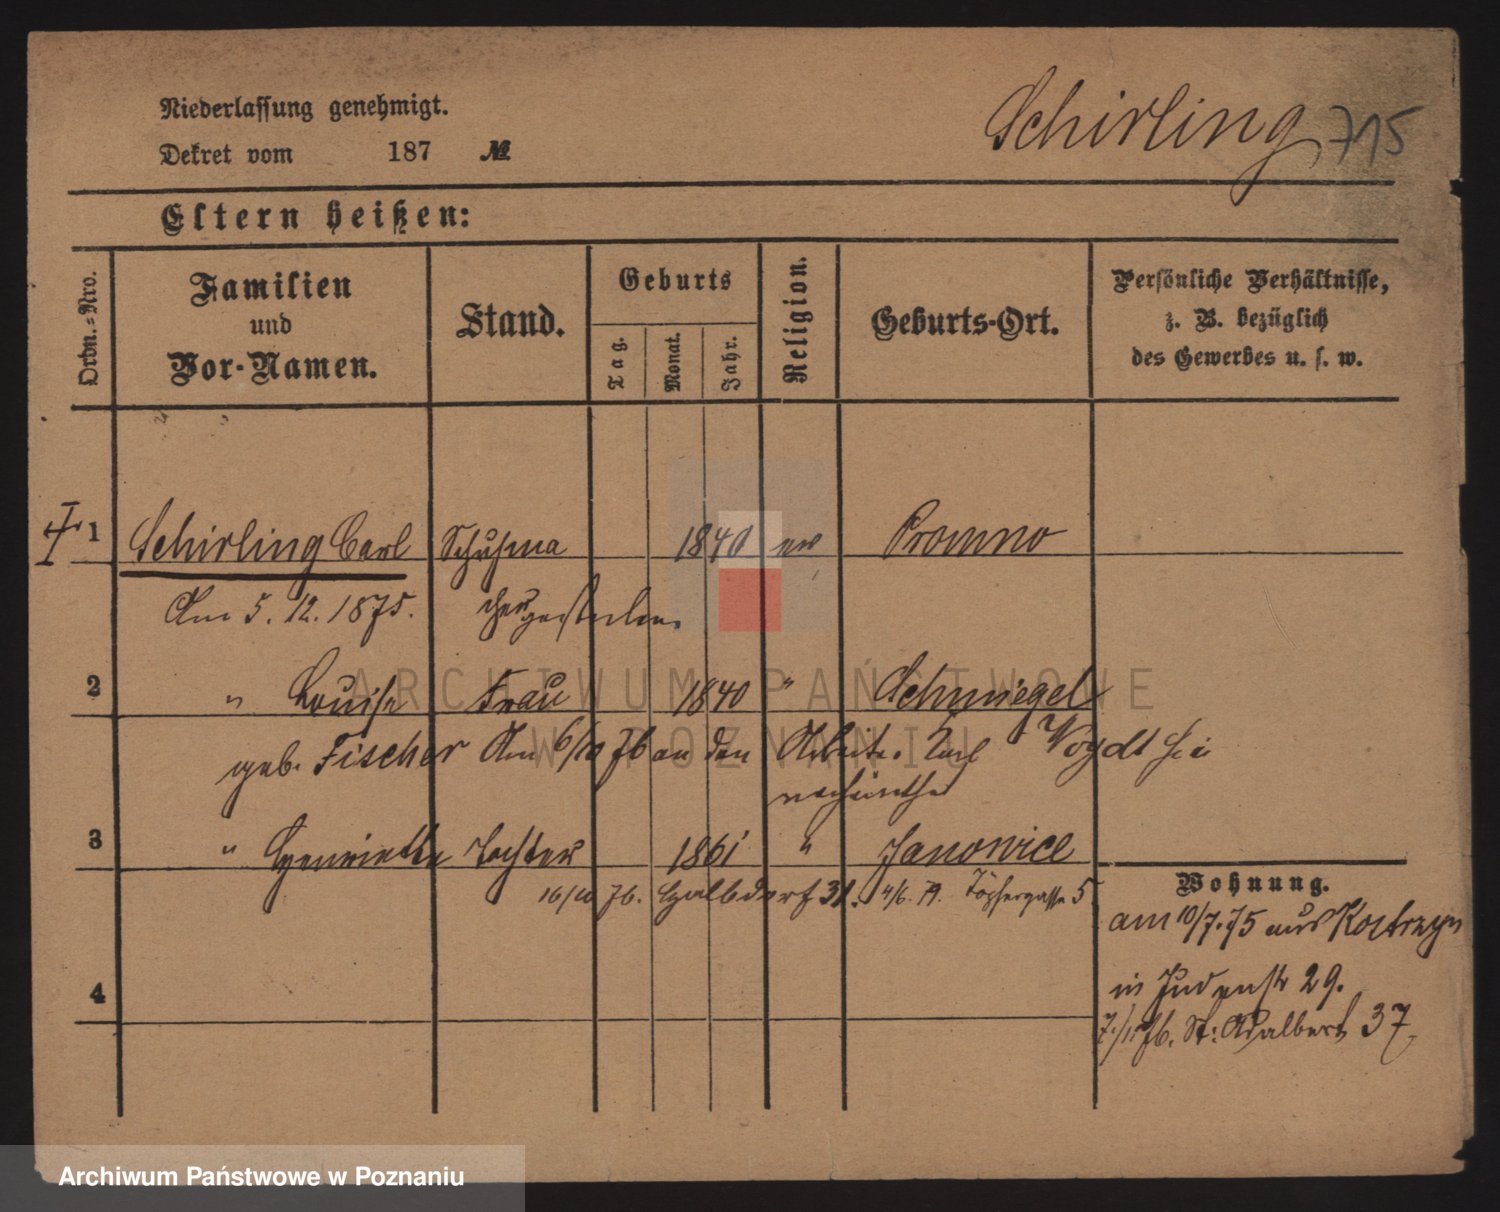 Niederlassung genehmigt.
Schirling 715
Dekret vom 187 №
Eltern heißen:
Ordn.-Nro.
Familien und Vor-Namen.
Stand.
Geburts
Tag.
Monat.
Jahr.
Religion.
Geburts-Ort.
Persönliche Verhältnisse,
z. B. bezüglich
des Gewerbes u. s. w.
1 Schirling Carl Schuhma 1840 ev Promno
Am 5. 12. 1875. cher gestorben.
2 " Louise Frau 1840 " Schmiegel
geb. Fischer Am 6/10 76 an den Arbeit. Karl Voydt hie
3 " Henriette Tochter 1861 " Janowice
Wohnung.
16/10 76. Halbdorf 31. 4/6. 79. Töpfergasse 5
am 10/7.75 aus Kostrzyn
4
in Judenstr 29.
76. St: Adalbert 37
ARCHIWUM PAŃSTWOWE
W POZNANIU
Archiwum Państwowe w Poznaniu